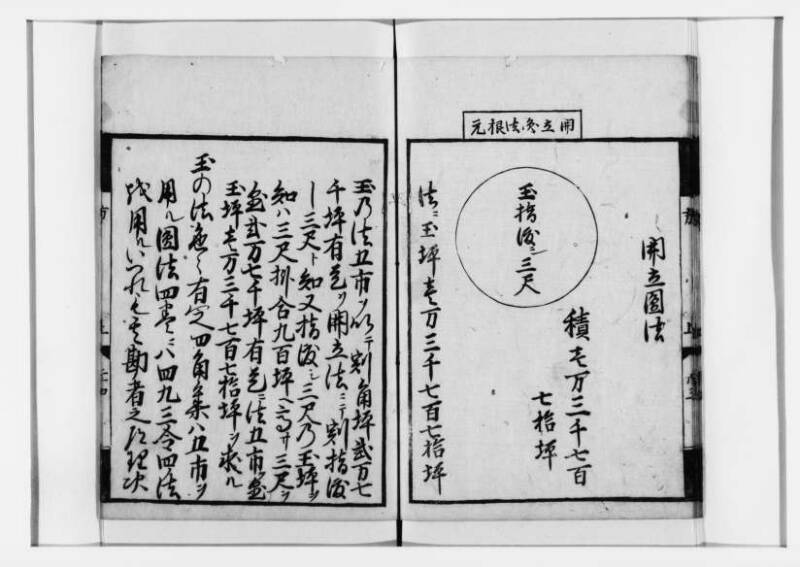 開立圓法
積壱万三千七百
七拾坪
玉指渡シ三尺
法ニ玉坪壱万三千七百七拾坪
玉乃法五市ヲ以テ割角坪弐万七
千坪有是ヲ開立法ニテ割指渡
シ三尺ト知又指渡シ三尺乃玉坪ヲ
知ハ三尺掛合九百坪へ高サ三尺ヲ
弐万七千坪有是ニ法五市
玉坪壱万三千七百七拾坪ヲ求ル
玉の法色〻有定四角八五市ヲ
用ル圓法四ニハ四九三令四法
用ルいつれも勘者之次